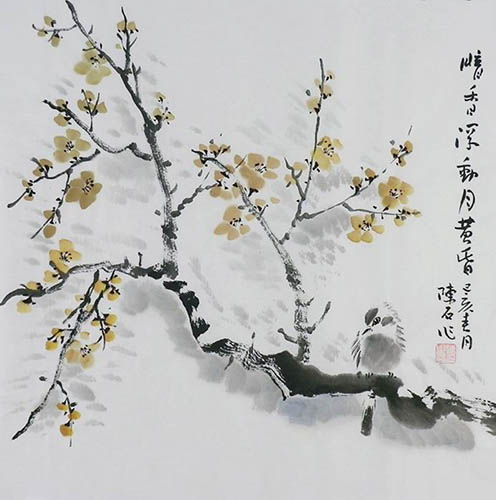 暗香浮動月黄昏
己亥春月
陳石作